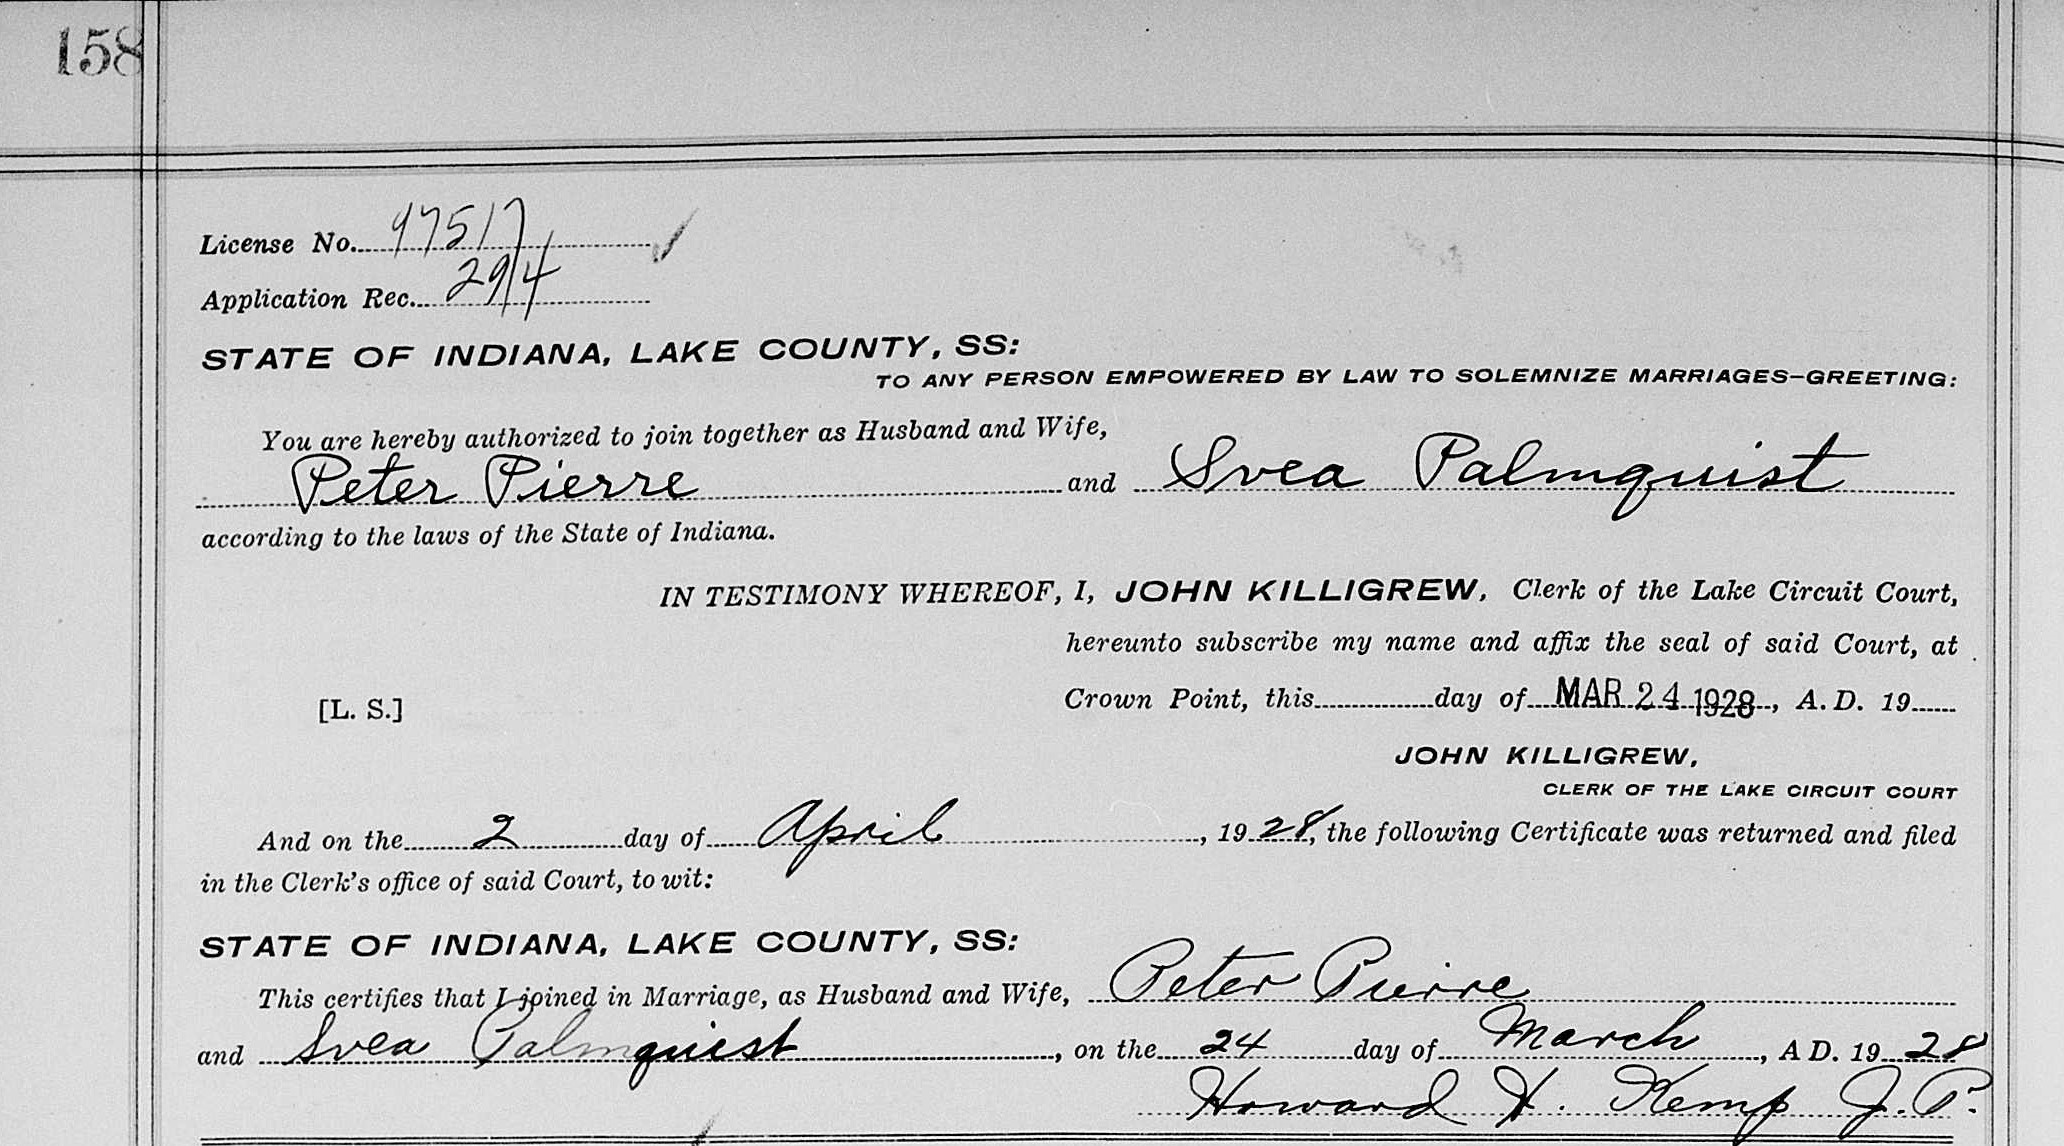 158
License No. 97517
Application Rec. 29/4
STATE OF INDIANA, LAKE COUNTY, SS:
TO ANY PERSON EMPOWERED BY LAW TO SOLEMNIZE MARRIAGES—GREETING:
You are hereby authorized to join together as Husband and Wife,
Peter Pierre and Svea Palmquist
according to the laws of the State of Indiana.
IN TESTIMONY WHEREOF, I, JOHN KILLIGREW, Clerk of the Lake Circuit Court,
hereunto subscribe my name and affix the seal of said Court, at
[L. S.] Crown Point, this day of MAR 24 1928, A. D. 19
JOHN KILLIGREW,
CLERK OF THE LAKE CIRCUIT COURT
And on the 2 day of April, 1928, the following Certificate was returned and filed
in the Clerk's office of said Court, to wit:
STATE OF INDIANA, LAKE COUNTY, SS:
This certifies that I joined in Marriage, as Husband and Wife, Peter Pierre
and Svea Palmquist, on the 24 day of March, A D. 1928
Howard H. Kemp J. P.